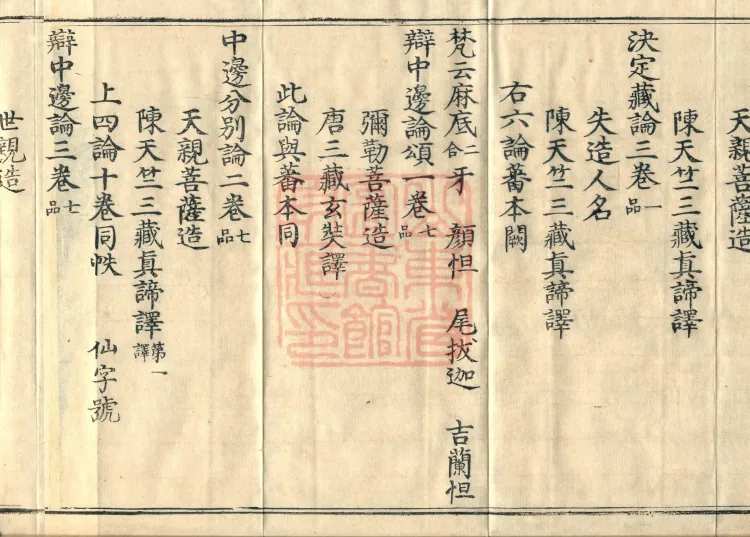 天親菩薩造
陳天竺三藏眞諦譯
決定藏論三卷一品
失造人名
陳天竺三藏眞諦譯
右六論蕃本闕
梵云麻底二合牙 顔怛 尾拔迦 吉蘭怛
辯中邊論頌一卷七品
彌勒菩薩造
唐三藏玄奘譯
此論與蕃本同
中邊分別論二卷七品
天親菩薩造
陳天竺三藏眞諦譯第一譯
上四論十卷同帙 仙字號
辯中邊論三卷七品
世親造